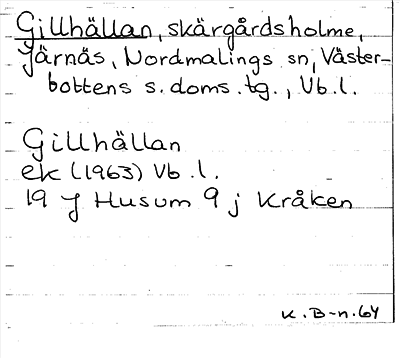 Gillhällan, skärgårdsholme,
Järnäs, Nordmalings sn, Väster-
bottens s. doms. tg., Vb. l.
Gillhällan
ek (1963) Vb. l.
19 J Husum 9 j Kråken
K. B-n. 64